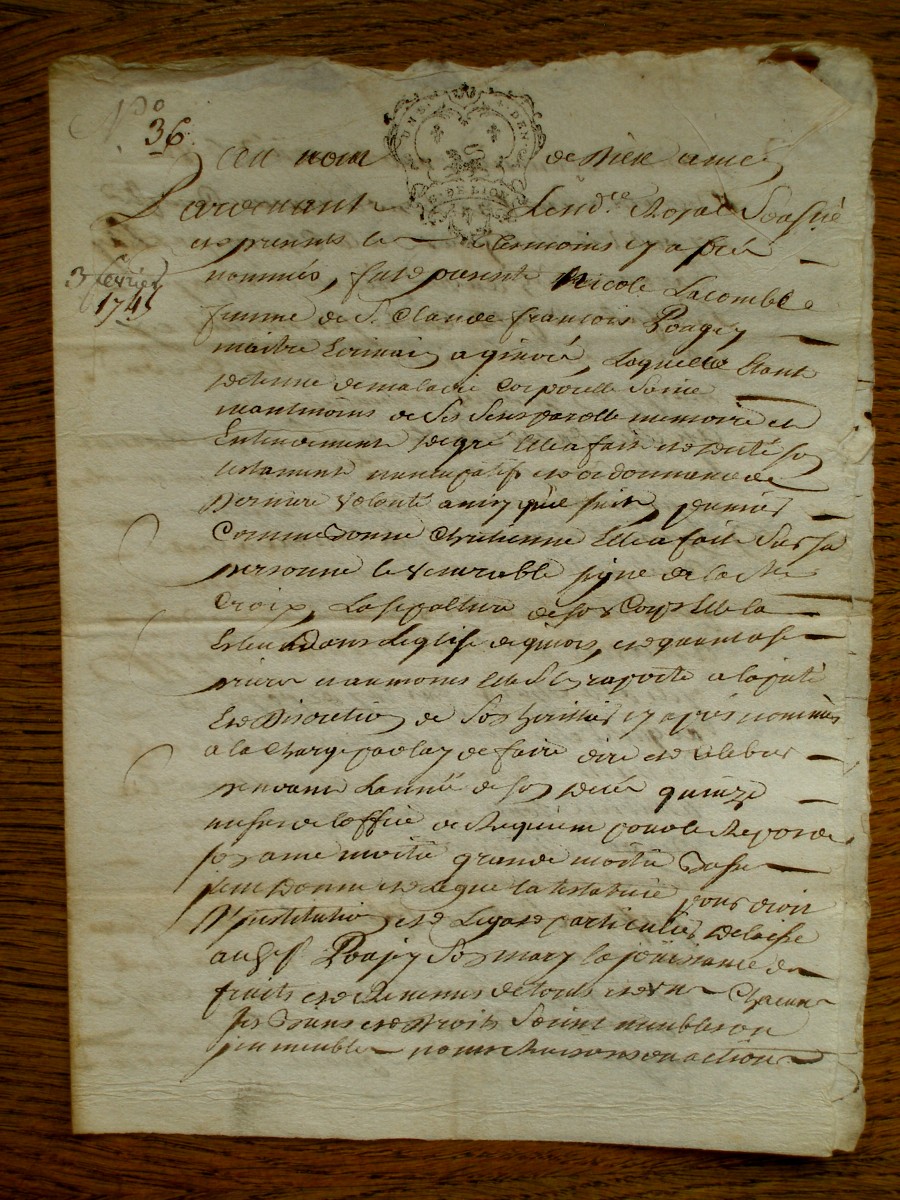 N° 36.
Au nom de Dieu amen
Pardevant Le nd.re Royal Soussigné
et presents les temoins cy apres
3 fevrier
1745
nommés, fut presente Nicole Lacombe
femme de S. Claude françois Pougey
maitre Ecrivain a givors, Laquelle Etant
detenue de maladie Corporelle Saine
neantmoins de Ses Sens parolle memoire et
Entendement de gré Elle a fait et dicté son
testament nuncupatif et ordonnance de
Derniere Volonté ainsy que suit, premier
Comme Bonne Chretienne Elle a fait Sur sa
personne le Venerable signe de la Ste
Croix, La sepulture de son Corps Elle la
Esleu dans L'eglise de givors, et quant a ses
prieres et aumones Elle S'en raporte a la pieté
Et Discretion de Son heritier cy apres nommés
a la Charge par luy de faire dire et celebrer
pendant L'année de son decés quinze
messes de l'office de Requiem pour le Repos de
son ame moitié grande moitié Basse
Item Donne et legue la testatrice pour droit
D'institution et Legat particulier delaisse
aud. Sr Pougey Son mary la joüissance des
fruits et Revenus de touts et un Chacuns
ses Biens et Droits Soient meubles ou
immeubles noms Raisons ou actions